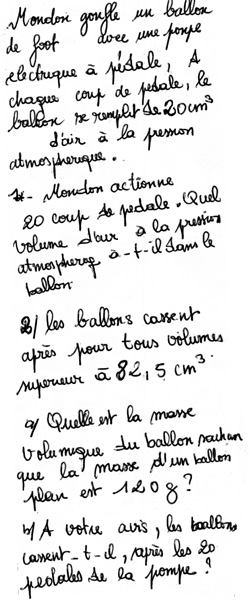 Mondon gonfle un ballon
de foot avec une pompe
electrique à pédale, A
chaque coup de pedale, le
ballon se remplit de 20cm³
d'air à la pression
atmospherique.
1- Mondon actionne
20 coup de pedale. Quel
volume d'air à la pression
atmospherq a-t-il dans le
ballon
2/ les ballons cassent
après pour tous volumes
superieur à 82,5 cm³.
a/ Quelle est la masse
volumique du ballon sachan
que la masse d'un ballon
plan est 120g?
b/ A votre avis, les baallons
cassent-t-il, après les 20
pedales de la pompe?